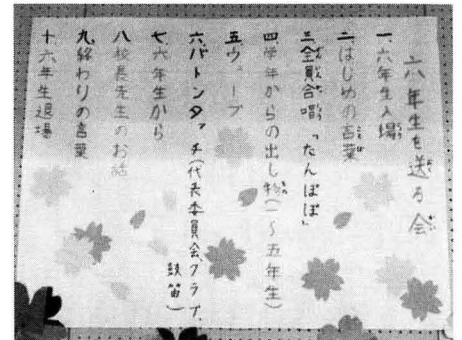 六年生を送る会
一、六年生入場
二、はじめの言葉
三、全員合唱「たんぽぽ」
四、学年からの出し物(一〜五年生)
五、ウェーブ
六、バトンタッチ(代表委員会、クラブ、
鼓笛)
七、六年生から
八、校長先生のお話
九、終わりの言葉
十、六年生退場